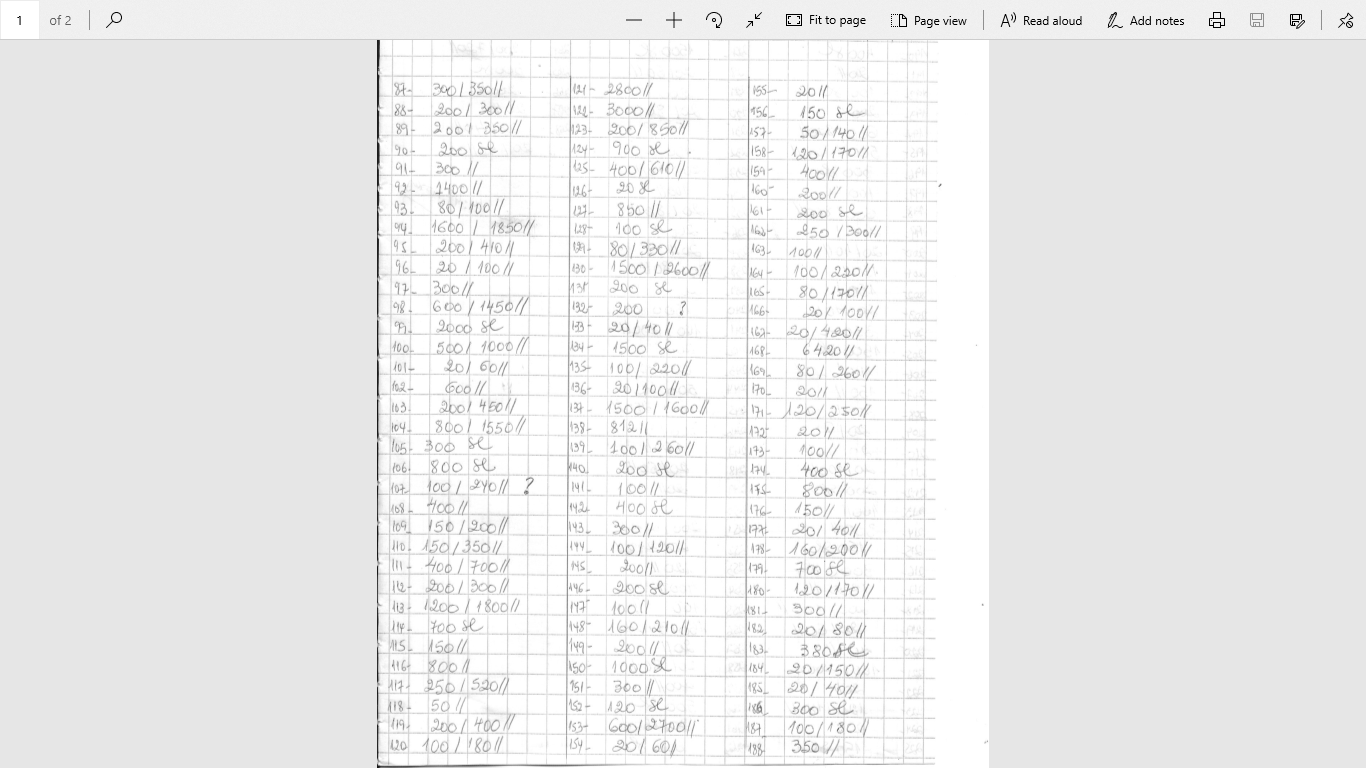 1 of 2 Fit to page Page view Read aloud Add notes
87- 300/350//
88- 200/300//
89- 200/350//
90- 200 sl
91- 300//
92- 1400//
93- 80/100//
94- 1600/1850//
95- 200/410//
96- 20/100//
97- 300//
98- 600/1450//
99- 2000 sl
100- 500/1000//
101- 20/60//
102- 600//
103- 200/450//
104- 800/1550//
105- 300 sl
106- 800 sl
107- 100/240// ?
108- 400//
109- 150/200//
110- 150/350//
111- 400/700//
112- 200/300//
113- 1200/1800//
114- 700 sl
115- 150//
116- 800//
117- 250/520//
118- 50//
119- 200/400//
120- 100/180//
121- 2800//
122- 3000//
123- 200/850//
124- 900 sl
125- 400/610//
126- 20 sl
127- 850//
128- 100 sl
129- 80/330//
130- 1500/2600//
131- 200 sl
132- 200 ?
133- 20/40//
134- 1500 sl
135- 100/220//
136- 20/100//
137- 1500/1600//
138- 812//
139- 100/260//
140- 200 sl
141- 100//
142- 400 sl
143- 300//
144- 100/120//
145- 200//
146- 200 sl
147- 100//
148- 160/210//
149- 200//
150- 1000 sl
151- 300//
152- 120 sl
153- 600/2700//
154- 20/60//
155- 20//
156- 150 sl
157- 50/140//
158- 120/170//
159- 400//
160- 200//
161- 200 sl
162- 250/300//
163- 100//
164- 100/220//
165- 80/170//
166- 20/100//
167- 20/420//
168- 6420//
169- 80/260//
170- 20//
171- 120/250//
172- 20//
173- 100//
174- 400 sl
175- 800//
176- 150//
177- 20/40//
178- 160/200//
179- 700 sl
180- 120/170//
181- 300//
182- 20/80//
183- 380 sl
184- 20/150//
185- 20/40//
186- 300 sl
187- 100/180//
188- 350//